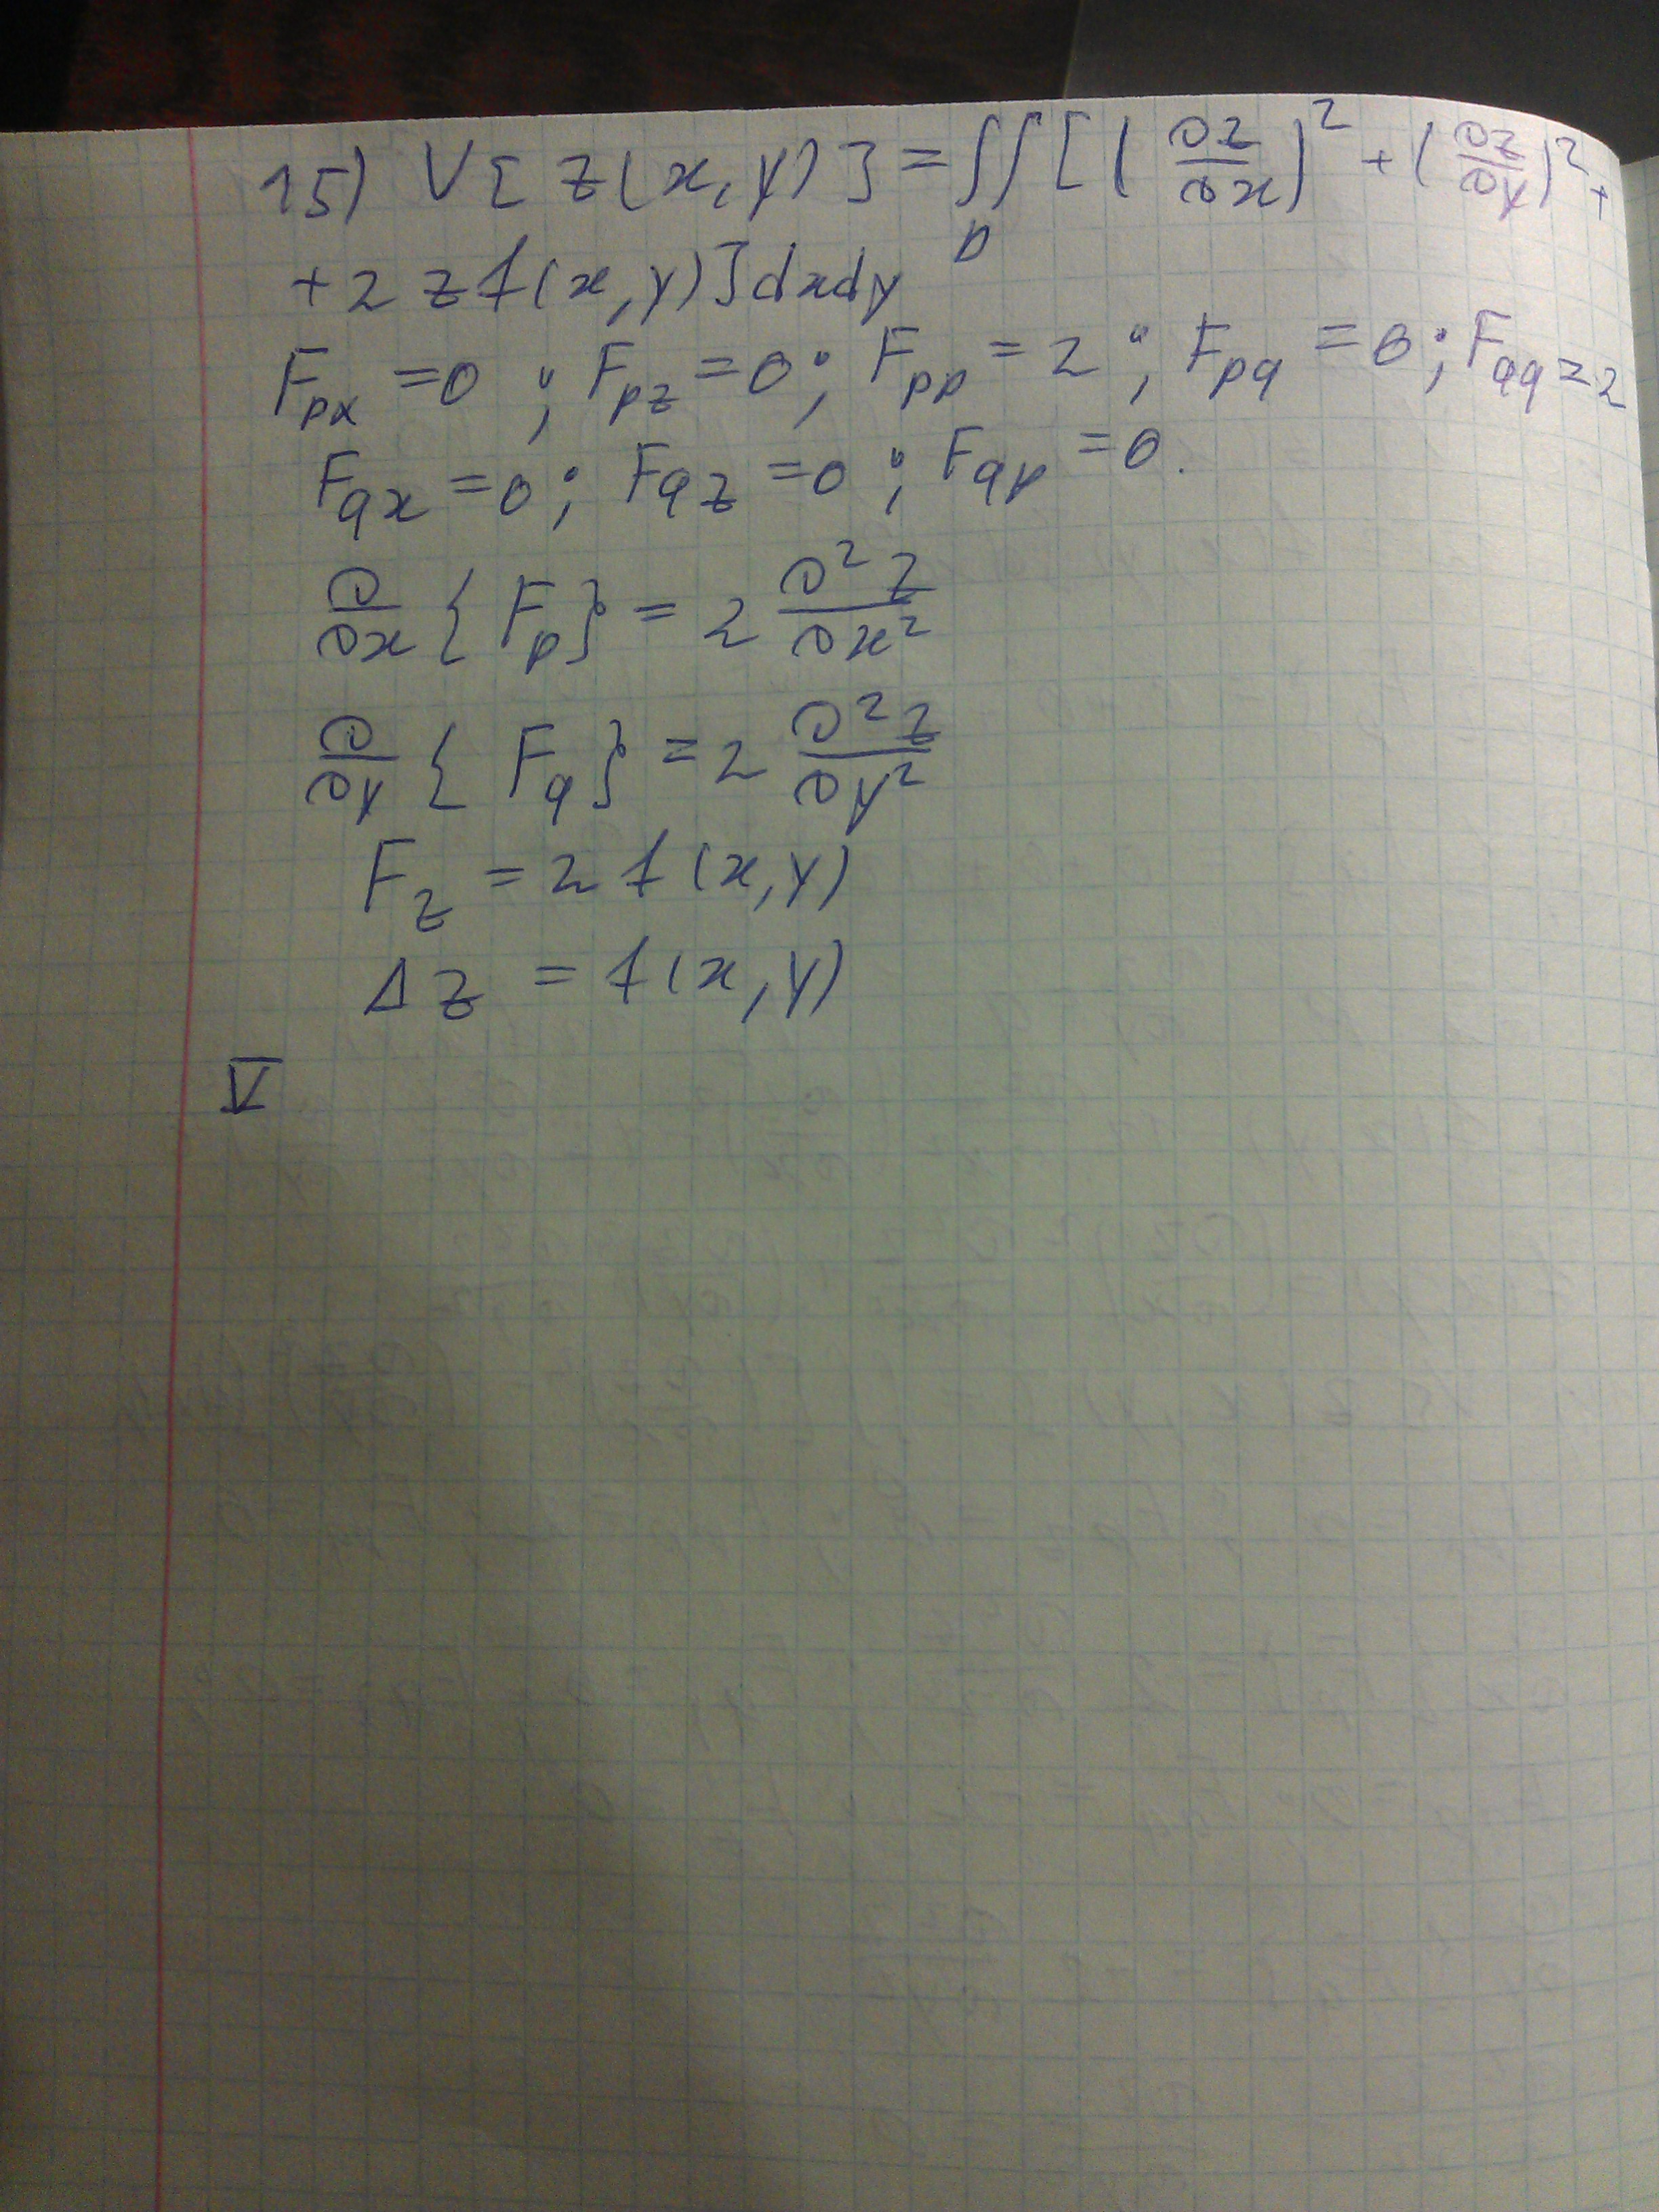 15) V[z(x,y)] = ∬_D [(∂z/∂x)² + (∂z/∂y)² +
+ 2 z f(x,y)] dxdy
F_px = 0 ; F_pz = 0 ; F_pp = 2 ; F_pq = 0 ; F_qq = 2
F_qx = 0 ; F_qz = 0 ; F_qp = 0.
∂/∂x {F_p} = 2 ∂²z/∂x²
∂/∂y {F_q} = 2 ∂²z/∂y²
F_z = 2 f(x,y)
Δz = f(x,y)
V